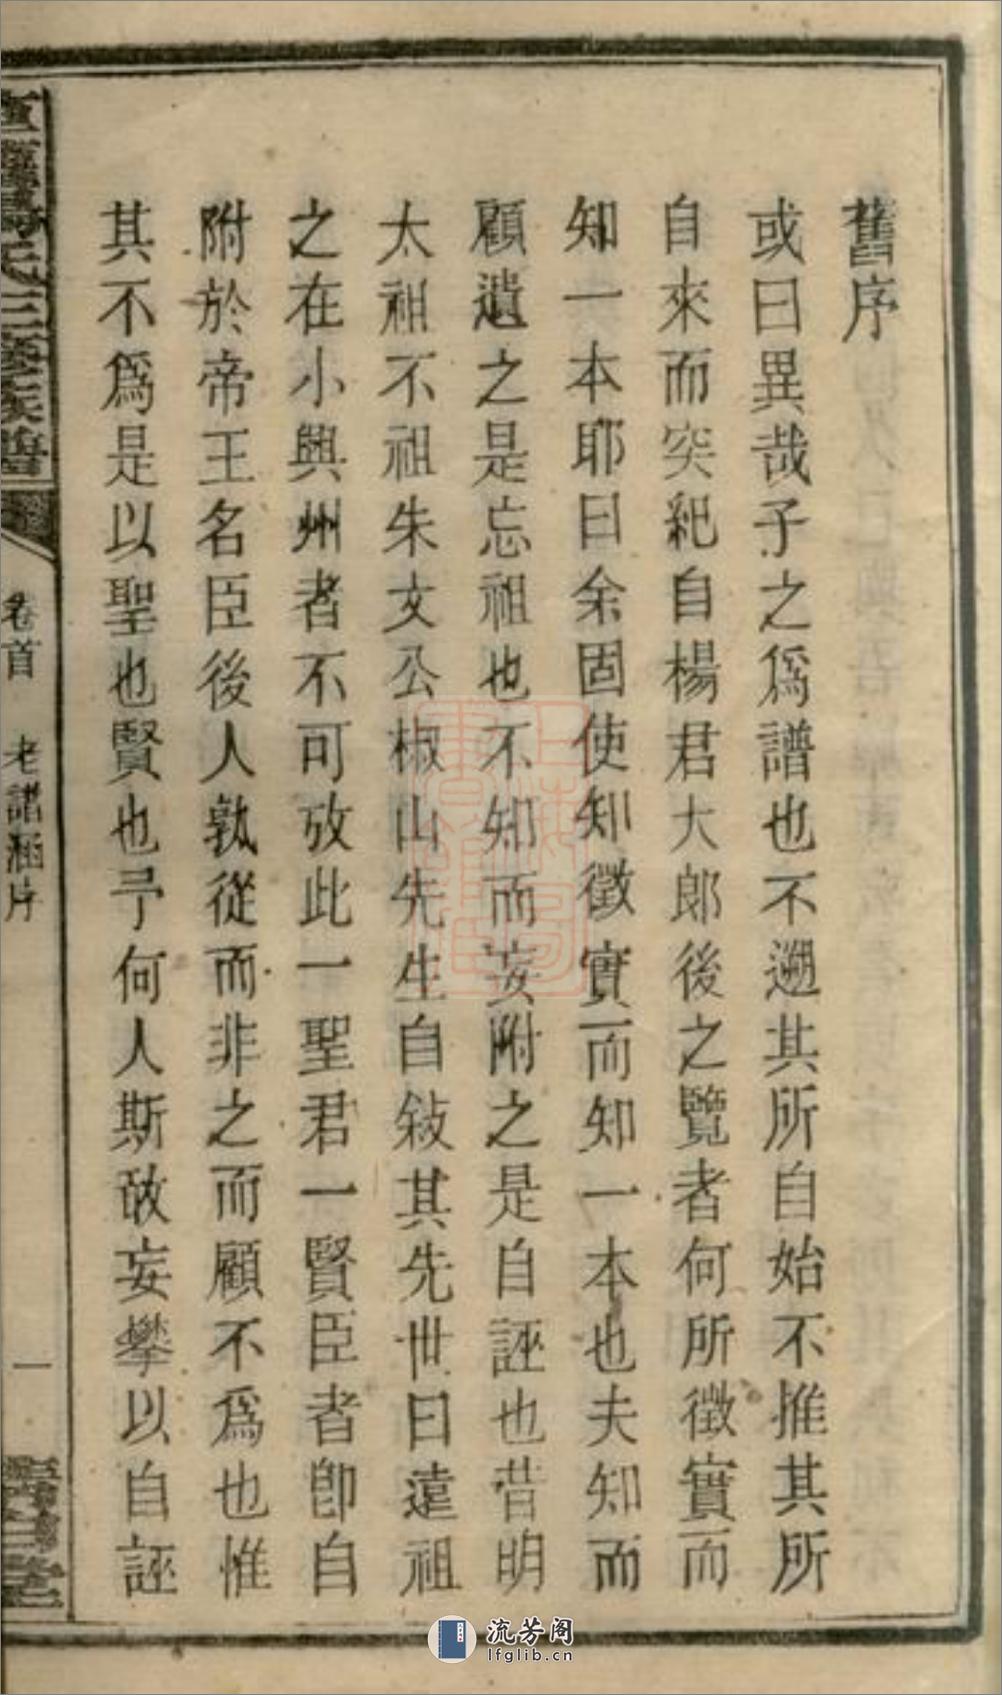 舊序
或曰異哉子之爲譜也不遡其所自始不推其所
自來而突紀自楊君大郎後之覽者何所徵實而
知一本耶曰余固使知徵實而知一本也夫知而
顧遺之是忘祖也不知而妄附之是自誣也昔明
太祖不祖朱文公椒山先生自敍其先世曰遠祖
之在小興州者不可攷此一聖君一賢臣者卽自
附於帝王名臣後人孰從而非之而顧不爲也惟
其不爲是以聖也賢也予何人斯敢妄攀以自誣
氏三修族譜
卷首
老譜
序
一
堂
流芳阁
lfglib.cn